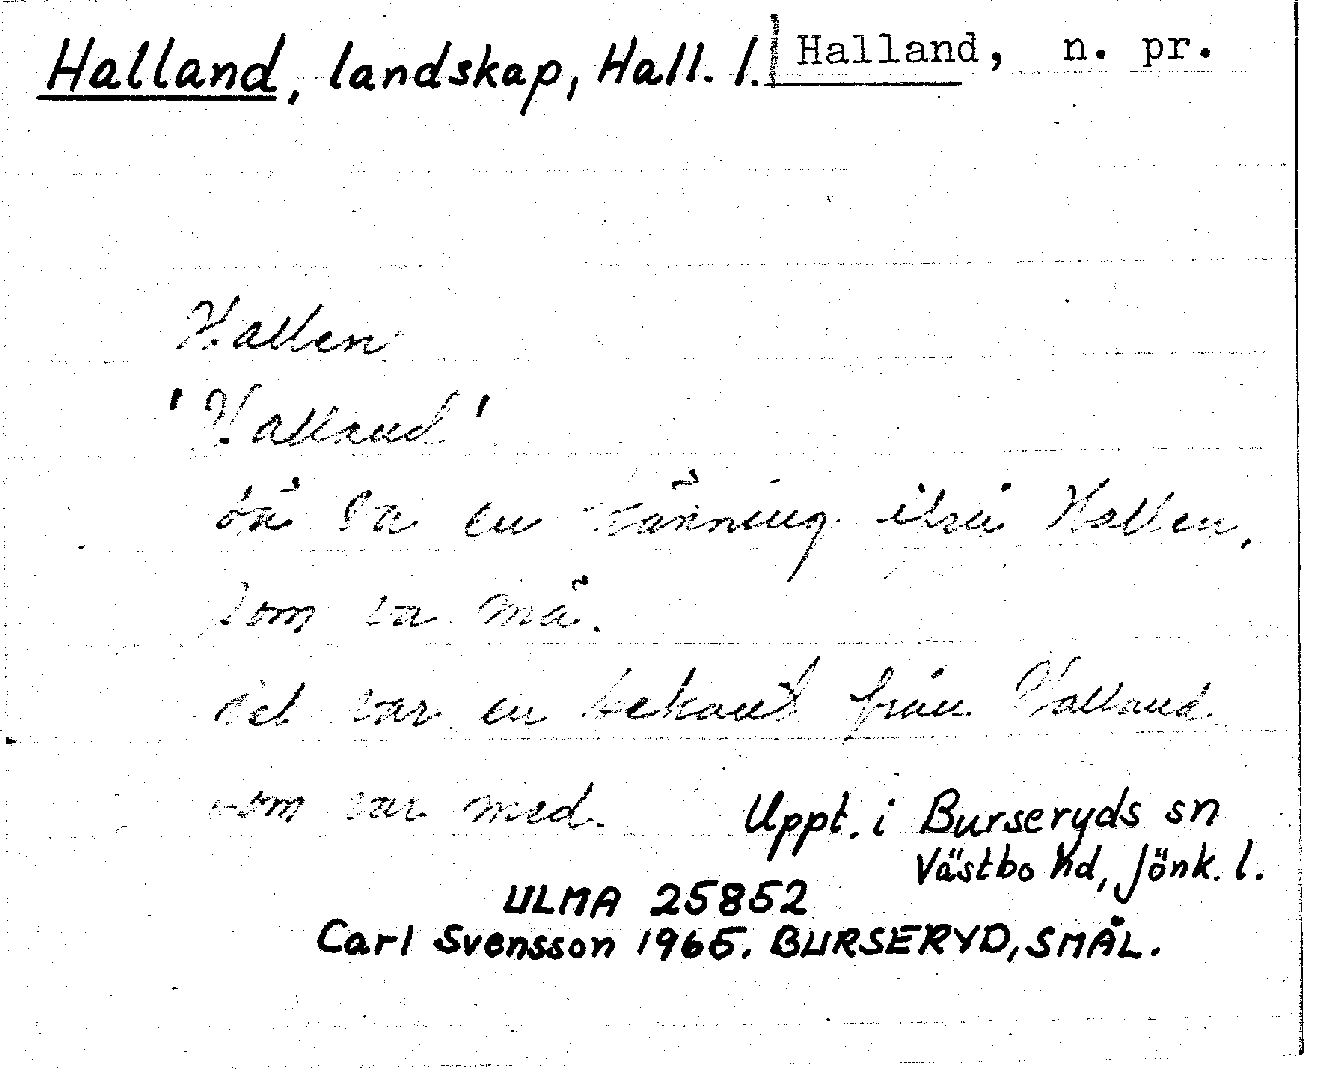 Halland, landskap, Hall. l. Halland, n. pr.
Hallen
'Halland'
dä va en känning ifrå Hallen,
som va mä.
det var en bekant från Halland
som var med.
Uppt. i Burseryds sn
Västbo hd, Jönk. l.
ULMA 25852
Carl Svensson 1965. BURSERYD, SMÅL.